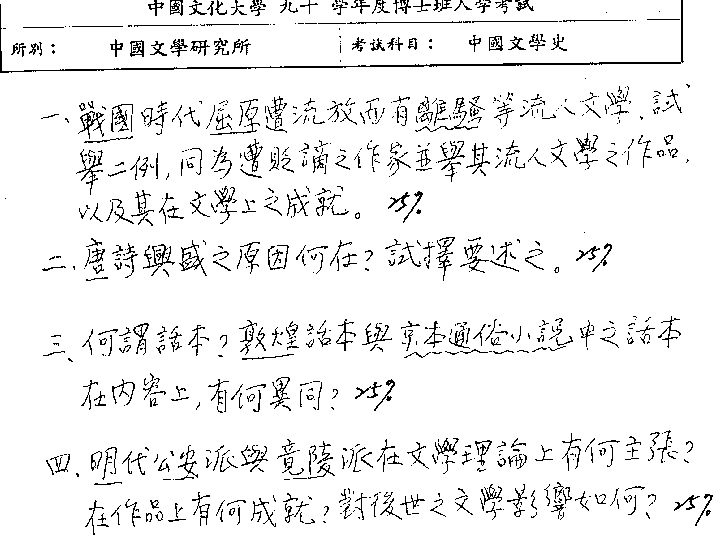 中國文化大學 九十 學年度博士班入學考試
所別： 中國文學研究所 考試科目： 中國文學史
一、戰國時代屈原遭流放而有離騷等流人文學，試
舉二例，同為遭貶謫之作家並舉其流人文學之作品，
以及其在文學上之成就。25%
二、唐詩興盛之原因何在？試擇要述之。25%
三、何謂話本？敦煌話本與京本通俗小說中之話本
在內容上，有何異同？25%
四、明代公安派與竟陵派在文學理論上有何主張？
在作品上有何成就？對後世之文學影響如何？25%